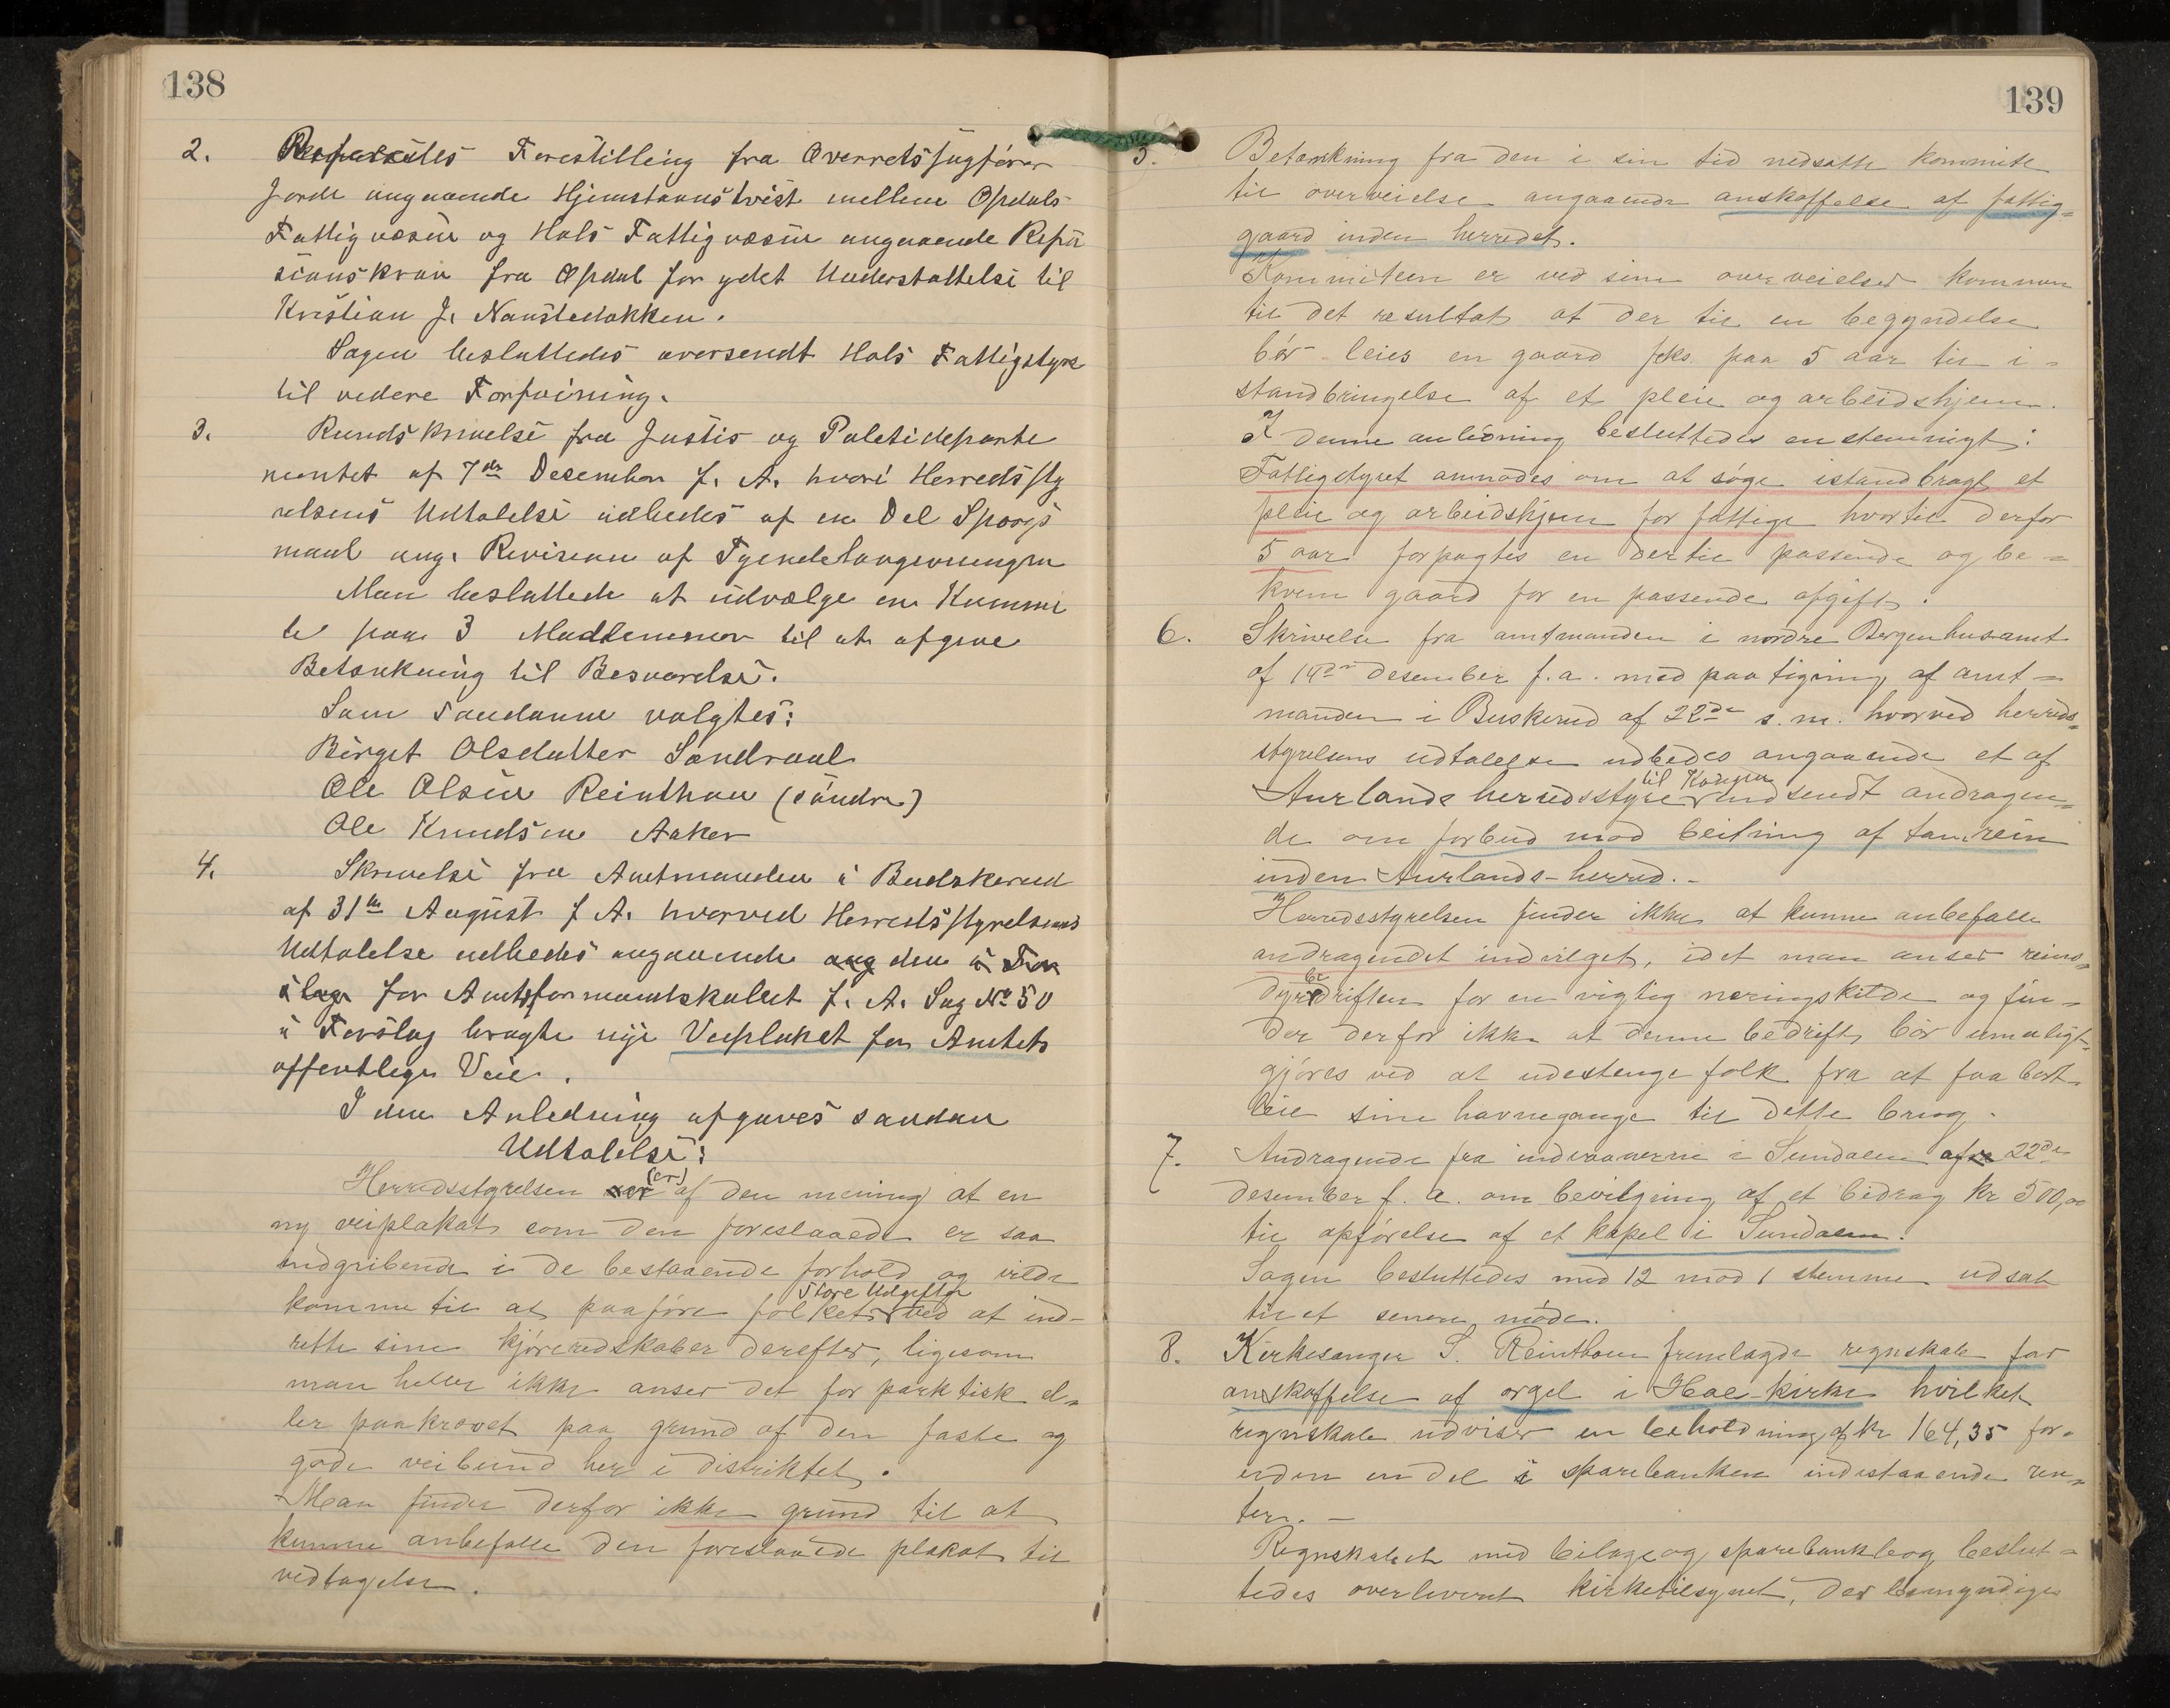 138
2. Refereredes Forestilling fra Overretssagförer
Jorde angaaende Hjemstavnstvist mellem Opdals
Fattigvæsen og Hols Fattigvæsen angaaende Refu
sionskrav fra Opdal for ydet Understøttelse til
Kristian J. Nanstedokken.
Sagen besluttedes oversendt Hols Fattigstyre
til videre Forføining.
3. Rundskrivelse fra Justis og Politideparte
mentet af 7de Desember f. A. hvori Herredssty
relsens Udtalelse udbedes af en Del Spørgs
maal ang. Revision af Tyendelovgivningen
Man besluttede at udvælge en Kommi
te paa 3 Medlemmer til at afgive
Betænkning til Besvarelse.
Som saadanne valgtes:
Birget Olsdatter Sandraal
Ole Olsen Reinthon (söndre)
Ole Knudsen Aaker
4. Skrivelse fra Amtmanden i Budskerud
af 31te August f A. hvorved Herredsstyrelsens
Udtalelse udbedes angaaende ang den i For
slag for Amtsformandskabet f. A. Sag No 50
i Forslag bragte nye Veiplakat for Amtets
offentlige Veie.
I den Anledning afgaves saadan
Udtalelse:
Herredsstyrelsen (er) af den mening at en
ny veiplakat som den foreslaaede er saa
indgribende i de bestaaende forhold og vilde
komme til at paaføre folket store Udgifter ved at ind-
rette sine kjöreredskaber derefter, ligesom
man heller ikke anser det for parktisk el=
ler paakrævet paa grund af den faste og
gode veibund her i distriktet.
Man finder derfor ikke grund til at
kunne anbefalle den foreslaaede plakat til
vedtagelse.
139
5. Betænkning fra den i sin tid nedsatte kommite
til overveielse angaaende anskaffelse af fattig=
gaard inden herredet.
Kommiteen er ved sine overveielser kommen
til det resultat at der til en begyndelse
bör leies en gaard feks. paa 5 aar til i=
standbringelse af et pleie og arbeidshjem.
I denne anledning besluttedes enstemmigt:
Fattigstyret anmodes om at søge istandbragt et
pleie og arbeidshjem for fattige hvortil derfor
5 aar forpagtes en dertil passende og be=
kvem gaard for en passende afgift.
6. Skrivelse fra amtmanden i nordre Bergenhusamt
af 19de desember f.a. med paategning af amt=
manden i Buskerud af 22de s.m. hvorved herreds=
styrelsens udtalelse udbedes angaaende et af
Aurlands herredsstyre til Kongen indsendt andragen=
de om forbud mod beitning af tamrein
inden Aurlands-herred.-
Herredsstyrelsen finder ikke at kunne anbefalle
andragendet indvilget, idet man anser reins=
dyrbedriften for en vigtig næringskilde og fin=
der derfor ikke at denne bedrift bör umuligt=
gjöres ved at udestenge folk fra at faa bort
leie sine havnegange til dette brug.
7. Andragende fra indvaanerne i Sundalen af 22de
desember f. a. om bevilgning af et bidrag kr 500,00
til opførelse af et kapel i Sundalen.
Sagen besluttedes med 12 mod 1 stemme udsat
til et senere møde.
8. Kirkesanger S. Reinthon fremlagde regnskab for
anskaffelse af orgel i Hol-kirke hvilket
regnskab udviser en beholdning af kr 164,35 for=
uden en del i sparebanken indestaaende ren=
ter. —
Regnskabet med bilage og sparebankbog beslut=
tedes overleveret kirketilsynet, der bemyndiges